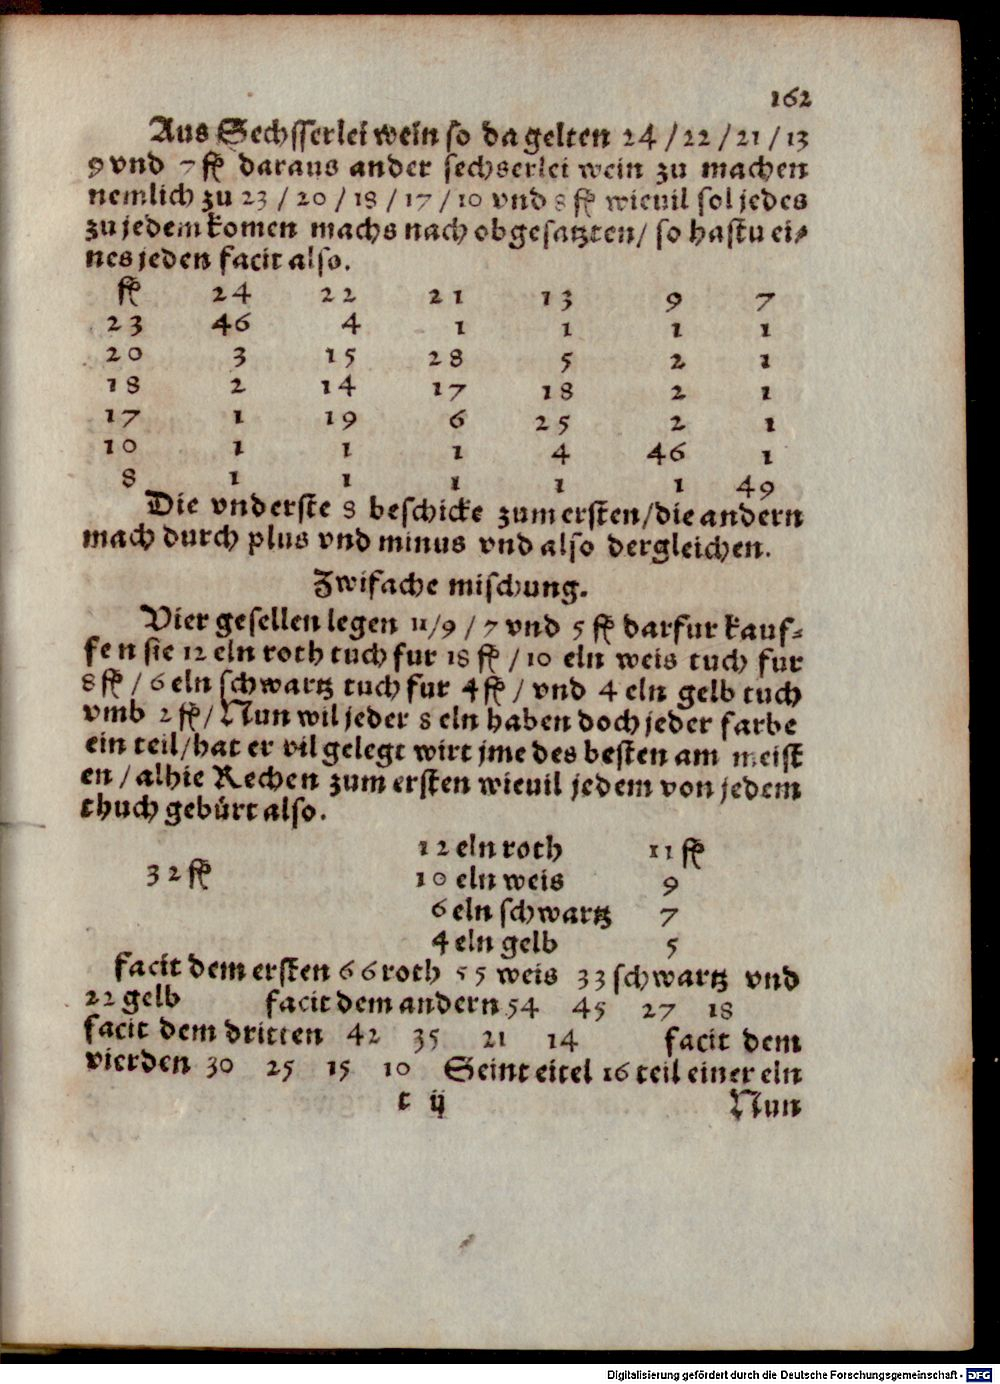 162
Aus Sechsserlei wein so da gelten 24 / 22 / 21 / 13
9 vnd 7 fl daraus ander sechserlei wein zu machen
nemlich zu 23 / 20 / 18 / 17 / 10 vnd 8 fl wieuil sol jedes
zu jedem komen machs nach obgesatzten / so hastu ei-
nes jeden facit also.
fl 24 22 21 13 9 7
23 46 4 1 1 1 1
20 3 15 28 5 2 1
18 2 14 17 18 2 1
17 1 19 6 25 2 1
10 1 1 1 4 46 1
8 1 1 1 1 1 49
Die vnderste 8 beschicke zum ersten / die andern
mach durch plus vnd minus vnd also dergleichen.
Zwifache mischung.
Vier gesellen legen 11 / 9 / 7 vnd 5 fl darfur kauf-
fen sie 12 eln roth tuch fur 18 fl / 10 eln weis tuch fur
8 fl / 6 eln schwartz tuch fur 4 fl / vnd 4 eln gelb tuch
vmb 2 fl / Nun wil jeder 8 eln haben doch jeder farbe
ein teil / hat er vil gelegt wirt jme des besten am meist
en / alhie Rechen zum ersten wieuil jedem von jedem
thuch gebürt also.
12 eln roth 11 fl
32 fl 10 eln weis 9
6 eln schwartz 7
4 eln gelb 5
facit dem ersten 66 roth 55 weis 33 schwartz vnd
22 gelb facit dem andern 54 45 27 18
facit dem dritten 42 35 21 14 facit dem
vierden 30 25 15 10 Seint eitel 16 teil einer eln
t ij Nun
Digitalisierung gefördert durch die Deutsche Forschungsgemeinschaft - DFG